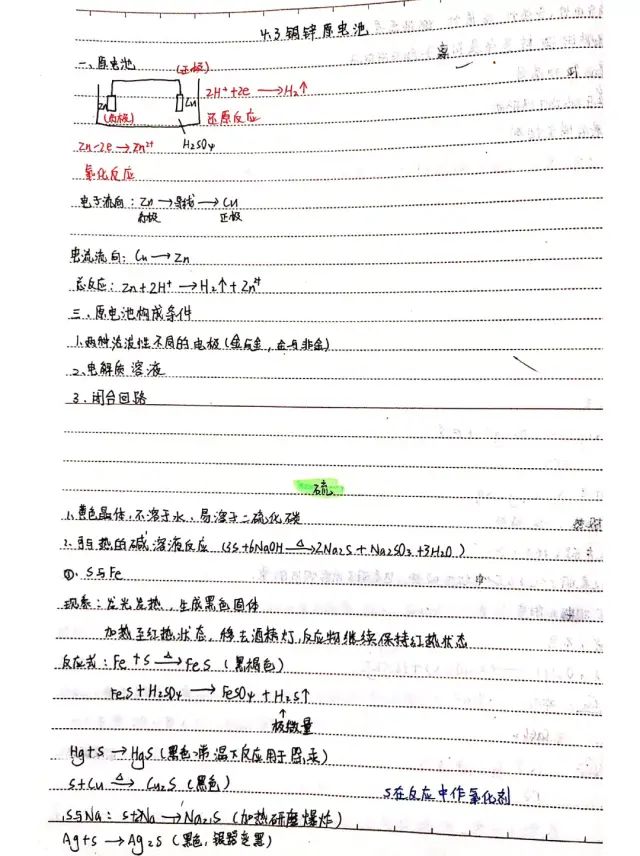 4.3铜锌原电池
一、原电池
(正极)
Zn
Cu
(负极)
2H⁺+2e⟶H₂↑
还原反应
H₂SO₄
Zn-2e→Zn²⁺
氧化反应
电子流向:Zn→导线→Cu
负极 正极
电流流向:Cu→Zn
总反应:Zn+2H⁺→H₂↑+Zn²⁺
三、原电池构成条件
1.两种活泼性不同的电极(金与金,金与非金)
2.电解质溶液
3.闭合回路
硫
1.黄色晶体,不溶于水,易溶于二硫化碳
2.可与热的碱溶液反应 (3S+6NaOH ≜ 2Na₂S+Na₂SO₃+3H₂O)
①、S与Fe
现象:发光发热,生成黑色固体
加热至红热状态,移去酒精灯,反应物继续保持红热状态
反应式:Fe+S ≜ FeS (黑褐色)
FeS+H₂SO₄→FeSO₄+H₂S↑
↑
极微量
Hg+S→HgS(黑色 常温下反应用于除汞)
S+Cu △→ Cu₂S (黑色)
S在反应中作氧化剂
S与Na:S+2Na→Na₂S (加热研磨爆炸)
Ag+S→Ag₂S (黑色,银器变黑)